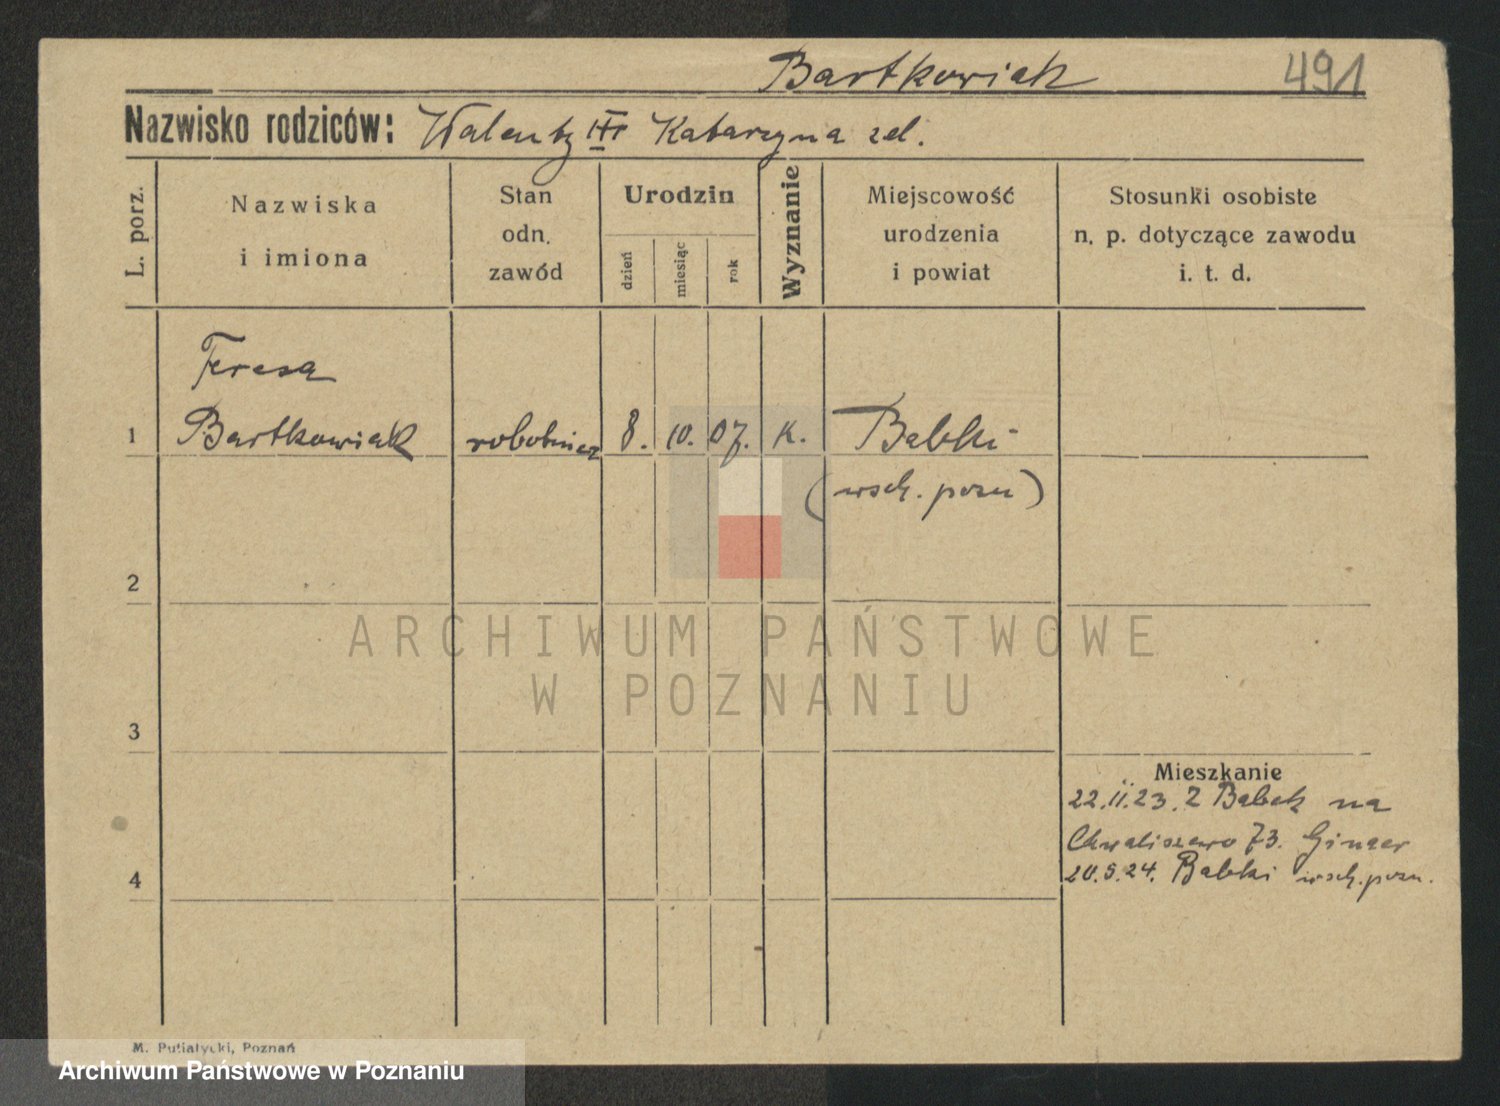 Bartkowiak 491
Nazwisko rodziców: Walenty Katarzyna zd.
L. porz.
Nazwiska
i imiona
Stan
odn.
zawód
Urodzin
dzień
miesiąc
rok
Wyznanie
Miejscowość
urodzenia
i powiat
Stosunki osobiste
n. p. dotyczące zawodu
i. t. d.
Teresa
1 Bartkowiak robotnica 8. 10. 07. k. Babki
(wsch. pozn)
2
3
4
Mieszkanie
22.II.23. Z Babek na
Chwaliszewo 73. Ginter
20.5.24. Babki wsch. pozn.
ARCHIWUM PAŃSTWOWE
W POZNANIU
M. Putiatycki, Poznań
Archiwum Państwowe w Poznaniu